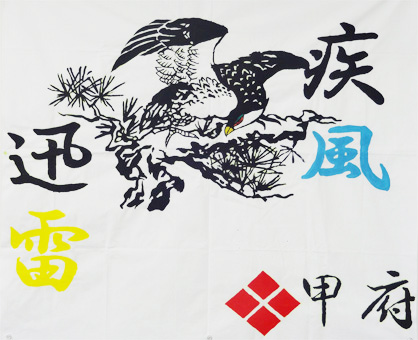 疾風
迅雷
甲府